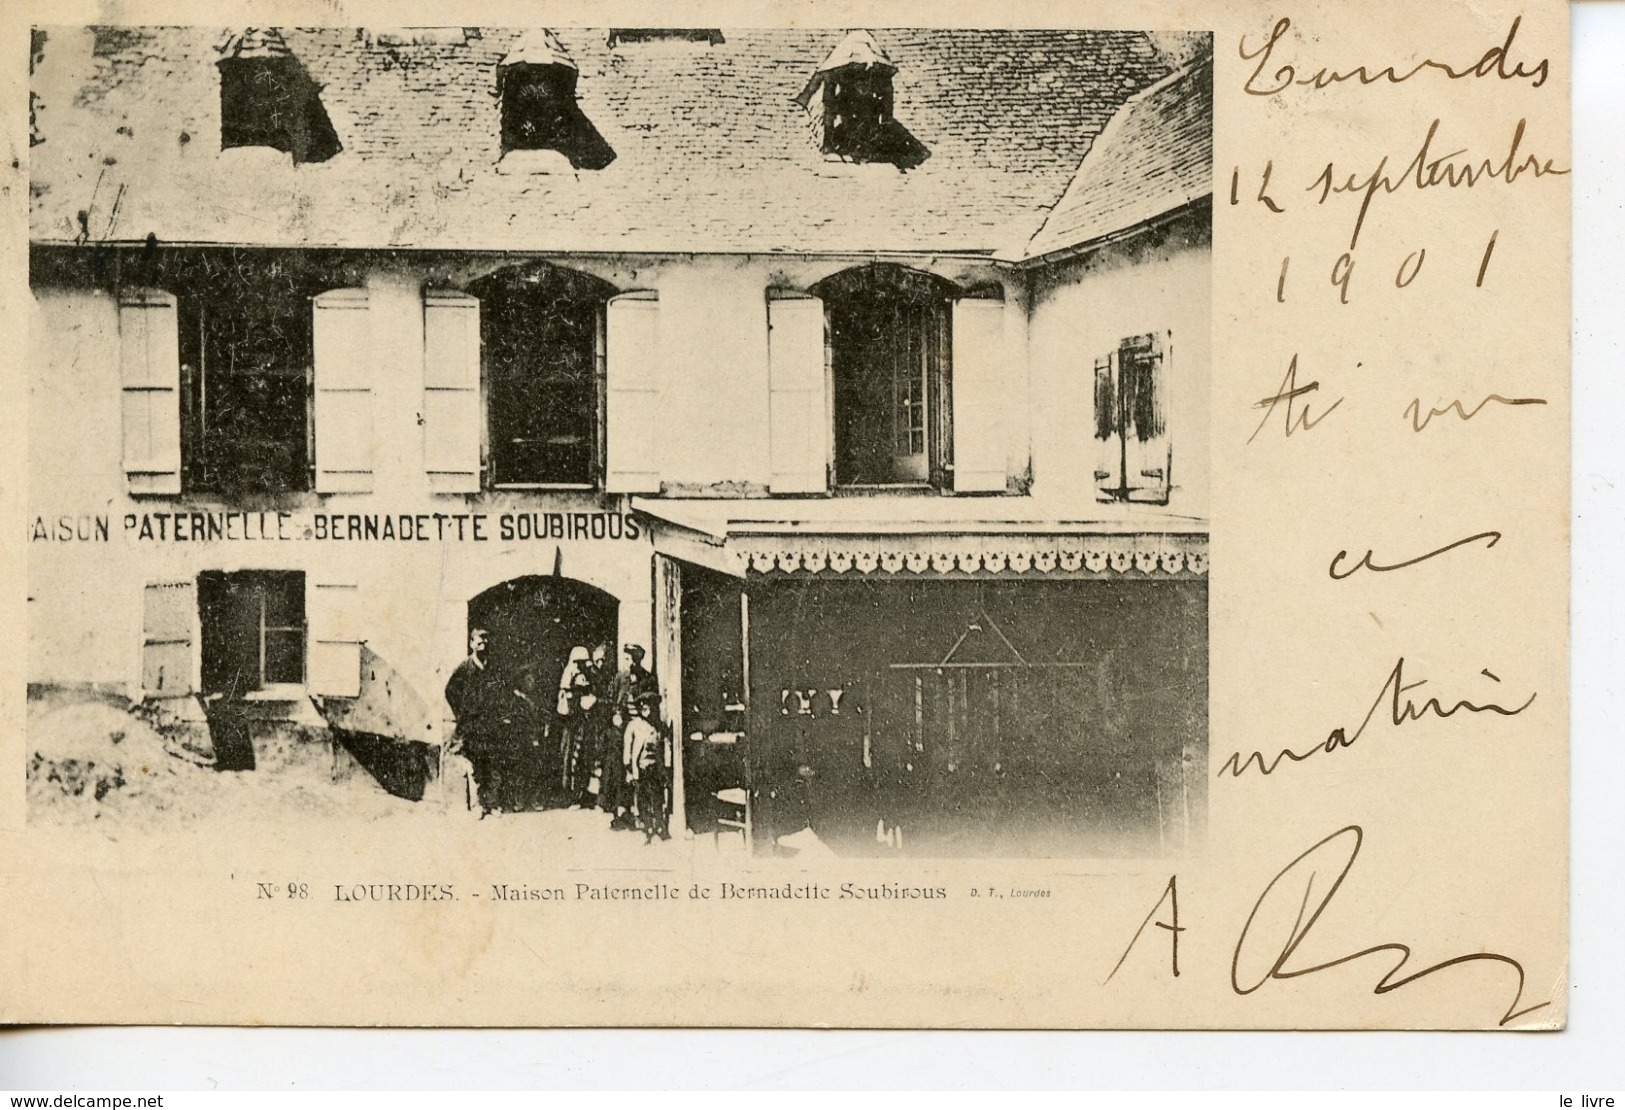 Lourdes
12 septembre
1901
ce
matin
A
AISON PATERNELLE BERNADETTE SOUBIROUS
N° 98. LOURDES. - Maison Paternelle de Bernadette Soubirous D. T., Lourdes
www.delcampe.net
le livre